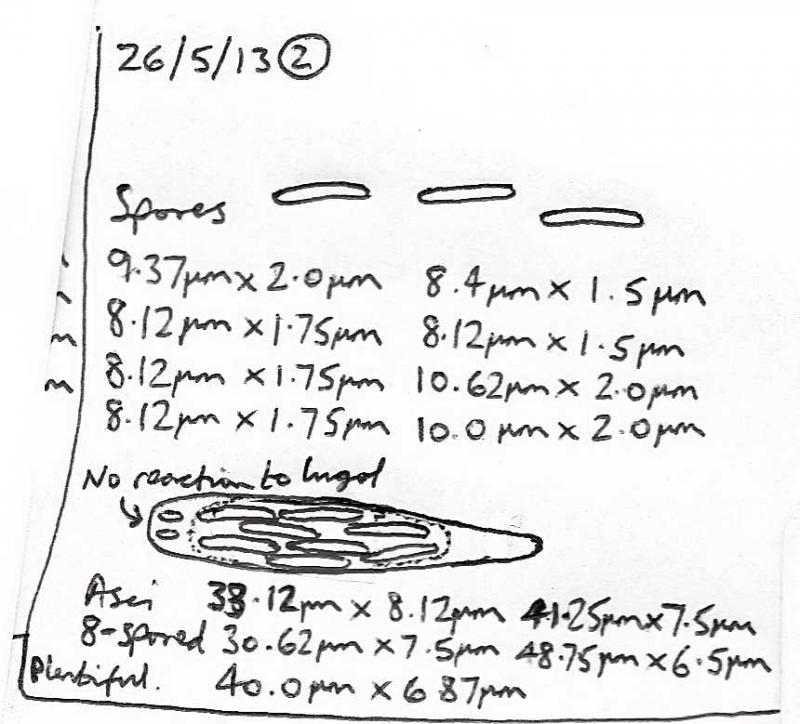 26/5/13 ②
Spores
9.37µm x 2.0µm 8.4µm x 1.5µm
8.12µm x 1.75µm 8.12µm x 1.5µm
8.12µm x 1.75µm 10.62µm x 2.0µm
8.12µm x 1.75µm 10.0µm x 2.0µm
No reaction to lugol
Asci 33.12µm x 8.12µm 41.25µm x 7.5µm
8-spored 30.62µm x 7.5µm 48.75µm x 6.5µm
Plentiful. 40.0µm x 6.87µm